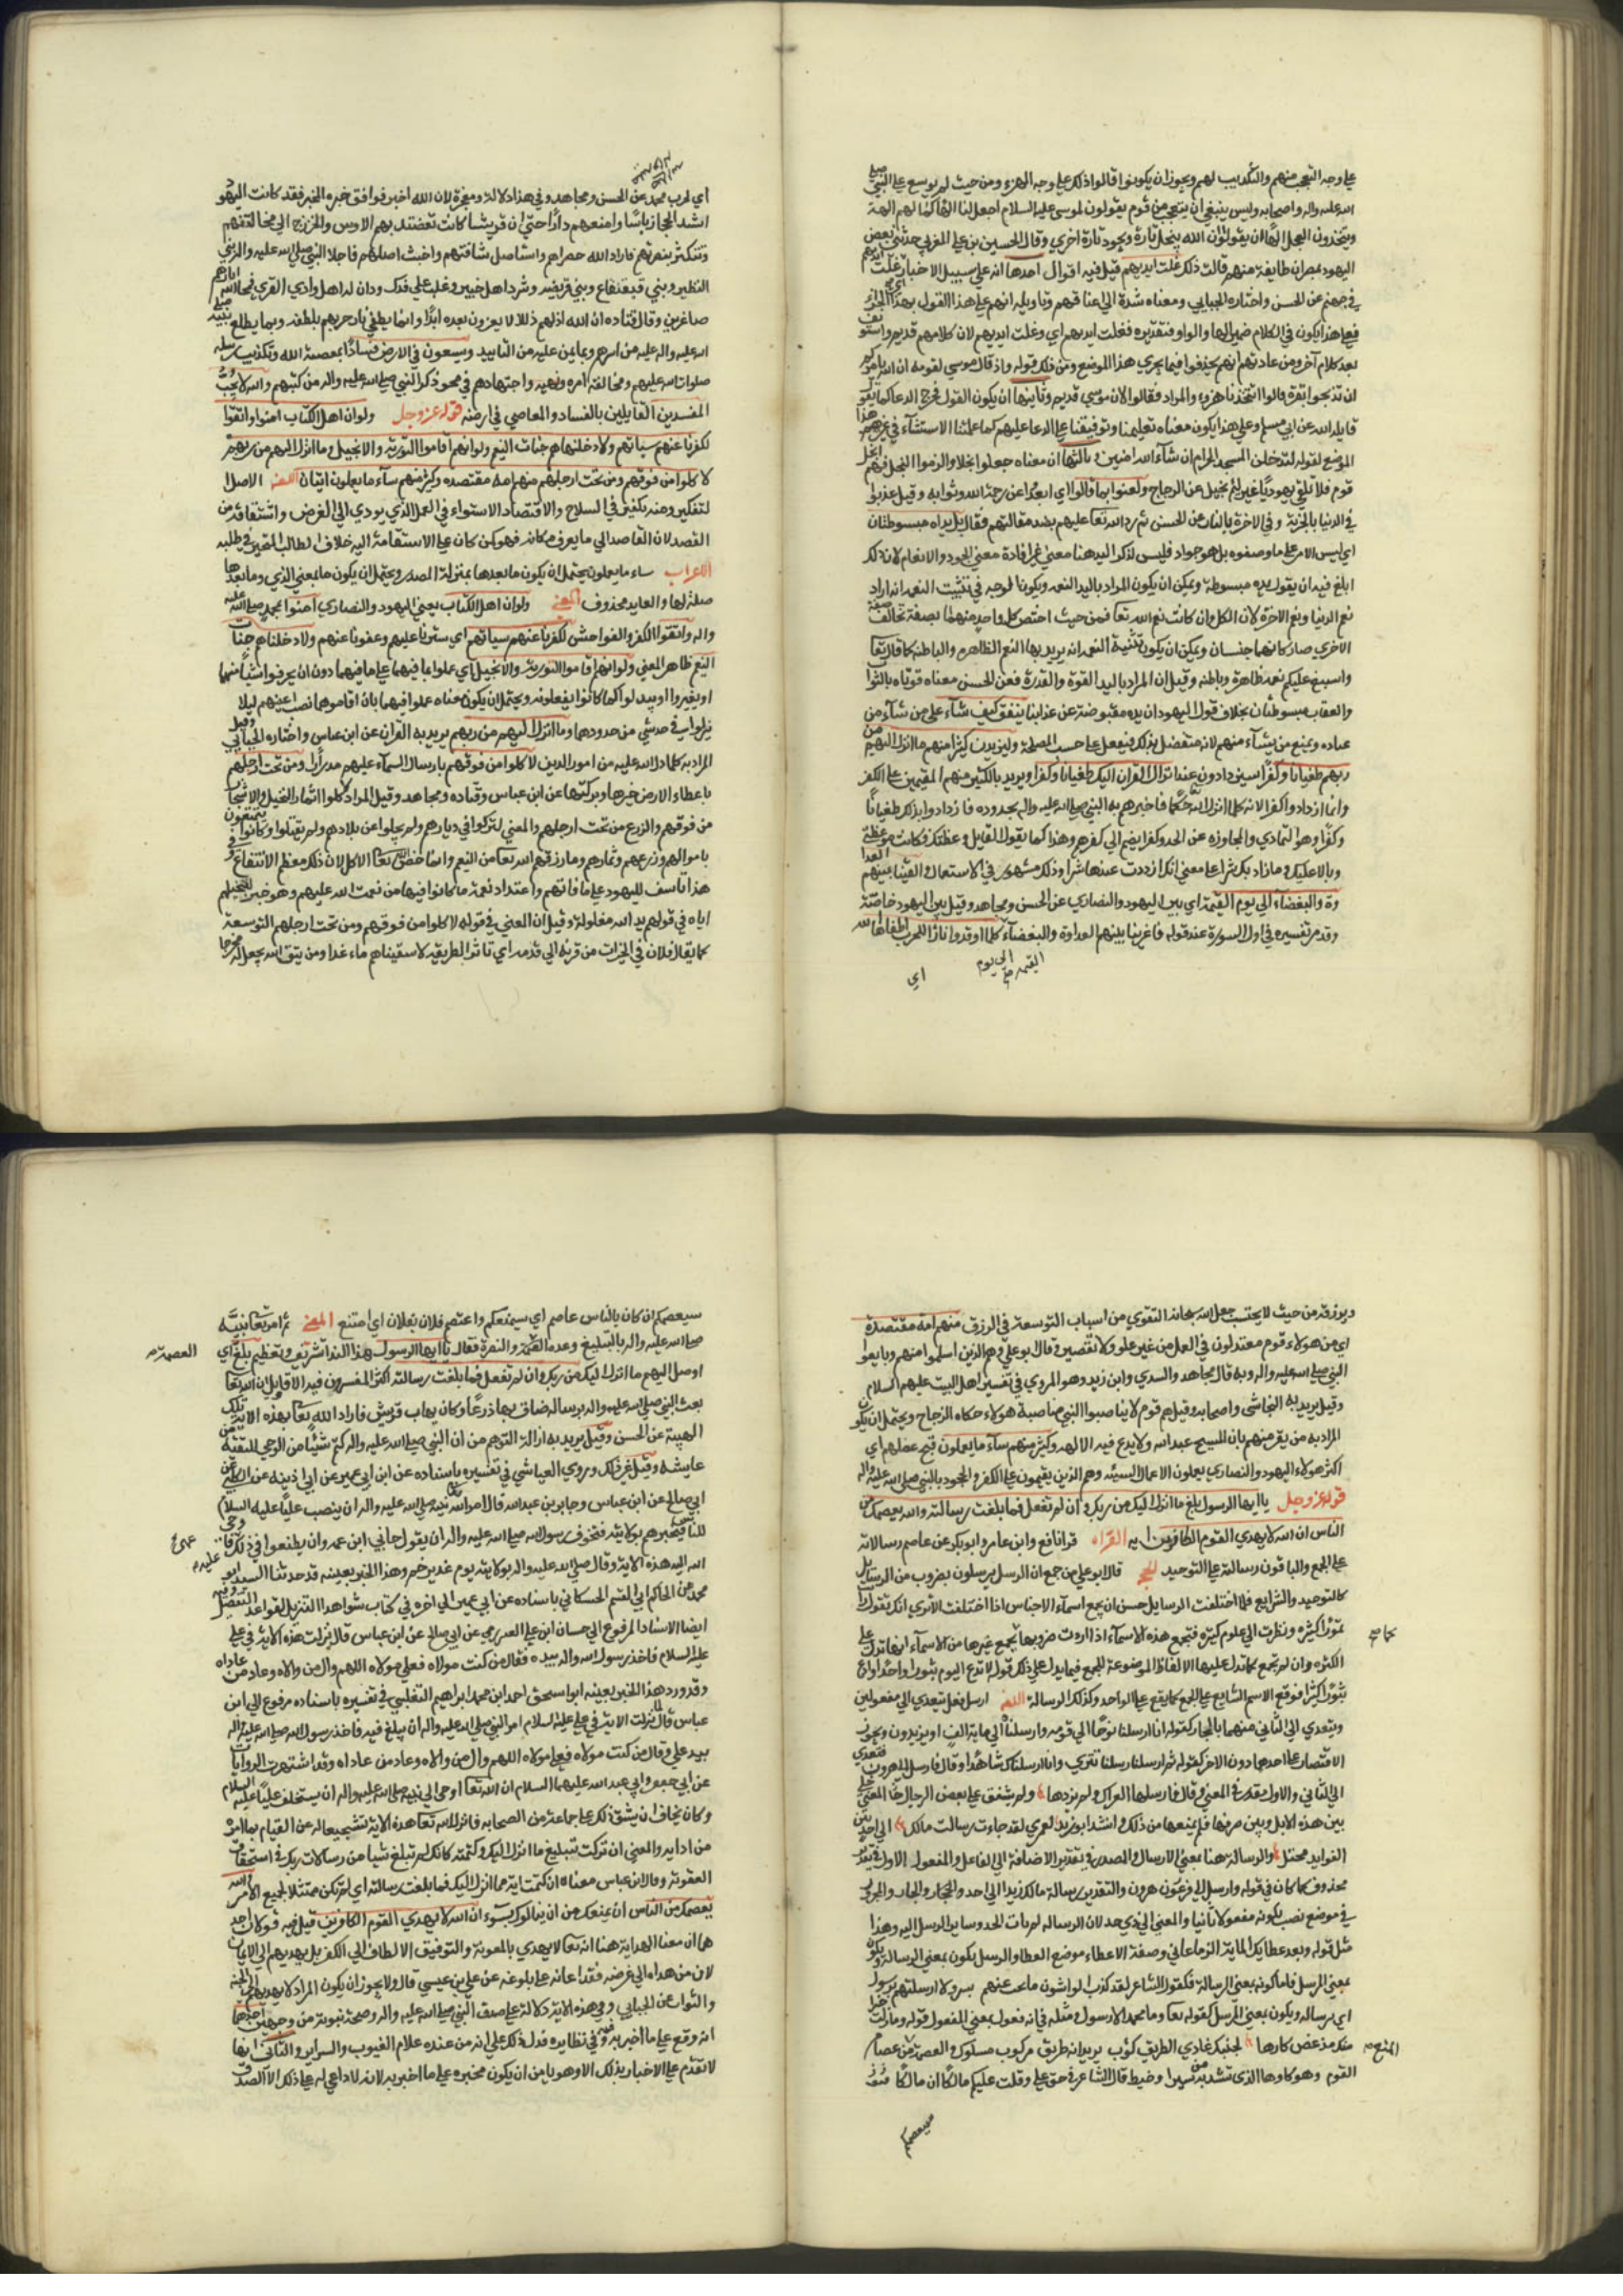 علي وجه التعجب منهم والتكذيب لهم ويجوز ان يكونوا قالوا ذلك علي وجه الهزء ومن حيث لم يوسع علي النبي صلي
الله عليه واله واصحابه وليس ينبغي ان يتعجب من قوم يقولون لموسي عليه السلام اجعل لنا الها كما لهم الهة
ويتخذون العجل الها ان يقولوا ان الله يبخل تارة ويجود تارة اخري وقال الحسين بن علي المغربي حدثني بعض
اليهود بمصر ان طايفة منهم قالت ذلك غلت ايديهم قيل فيه اقوال احدها انه علي سبيل الاخبار اي غلت ايديهم
في جهنم عن الحسن واختاره الجبايي ومعناه شدة الي اعناقهم وتاويله انهم علي هذا القول بهذا الجزاء
فعلي هذا يكون في الكلام ضمير الفا والواو فتقديره فغلت ايديهم اي وغلت ايديهم لان كلامهم قد تم واستونف
بعده كلام آخر ومن عادتهم انهم يحذفوا فيما يجري هذا الموضع ومن ذلك قوله واذ قال موسي لقومه ان الله يامركم
ان تذبحوا بقرة قالوا اتتخذنا هزوا والمراد فقالوا لان موسي قد تم وثانيها ان يكون القول خرج الدعا كما يقو
قاتله الله عن ابي مسلم وعلي هذا يكون معناه تعليمنا وتوفيقنا علي الدعا عليهم كما علمنا الاستثنآء في غير هذا
الموضع لقوله لتدخلن المسجد الحرام ان شآء الله امنين وثالثها ان معناه جعلوا بخلا والزموا البخل فهم ابخل
قوم فلا تلقي يهوديا غير لئيم بخيل عن الزجاج ولعنوا بما قالوا اي ابعدوا عن رحمة الله وثوابه وقيل عذبوا
في الدنيا بالجزية وفي الاخرة بالنار عن الحسن ثم رد الله تعا عليهم بضد مقالتهم فقال بل يداه مبسوطتان
اي ليس الامر علي ما وصفوه بل هو جواد فليس لذكر اليد هنا معني غير افادة معني الجود والانعام لان ذلك
ابلغ فيه ان يقول يده مبسوطة ويمكن ان يكون المراد باليد النعمه ويكون الوجه في تثنيت النعمه انه اراد
نعم الدنيا ونعم الاخرة لان الكل وان كانت نعم الله تعا فمن حيث اختص كل واحد منهما بصفة تخالف صفة
الاخري صار كانهما جنسان ويمكن ان يكون تثنية النعمه انه يريد بها النعم الظاهره والباطنه كما قال تعا
واسبغ عليكم نعمه ظاهرة وباطنه وقيل ان المراد باليد القوة والقدرة فعن الحسن معناه قوتاه بالثوا
والعقاب مبسوطتان بخلاف قول اليهود ان يده مقبوضة عن عذابنا ينفق كيف شآء علي من شآء من
عباده ويمنع من يشآء منهم لانه متفضل بذلك فيفعل علي حسب المصلحة وليزيدن كثيرا منهم ما انزل اليهم من
ربهم طغيانا وكفرا سيزدادون عند انزال القرآن اليك طغيانا وكفرا ويريد بالكثير منهم المقيمين علي الكفر
وانما ازدادوا كفرا لانه كلما انزل الله حكما فاخبرهم به النبي صلي الله عليه واله بجحدوه فازدادوا بذلك طغيانا
وكفرا وهو التمادي والمجاوزه عن الحد وكفرا ينضم الي كفرهم وهذا كما يقول القايل وعظتك فكانت موعظتي
وبالا عليك وما زاد بك شرا علي معني انك ازددت عندها شرا وذلك مشهور في الاستعمال والقينا بينهم العدا
وة والبغضآء الي يوم القيمة اي بين اليهود والنصاري عن الحسن ومجاهد وقيل بين اليهود خاصة
وقد مر تفسيره في اول السورة عند قوله فاغرينا بينهم العداوة والبغضآء كلما اوقدوا نارا للحرب اطفاها الله
الي يوم القيمه صح
اي
اي لحرب محمد عن الحسن ومجاهد وفي هذا دلالة ومعجزة لان الله اخبر فوافق خبره المخبر فقد كانت اليهود
اشد الحجاز باسا وامنعهم دارا حتي ان قريشا كانت تعتضد بهم الاوس والخزرج الي مخالفتهم
وتتكثر بنصرتهم فاراد الله حصراهم واستاصل شافتهم واخبث اصلهم فاجلا النبي صلي الله عليه واله بني
النظير وبني قينقاع وبني قريضه وشرد اهل خيبر وغلب علي فدك ودان له اهل وادي القري فمحا الله اثارهم
صاغرين وقال قتاده ان الله اذلهم ذلا لا يعزون بعده ابدا وانما يطفي نار حربهم بلطفه وبما يطلع نبيه صلي
الله عليه واله عليه من اسرهم وبما يمن عليه من التاييد ويسعون في الارض فسادا بمعصية الله وتكذيب رسله
صلوات الله عليهم ومخالفة امره ونهيه واجتهادهم في محو ذكر النبي صلي الله عليه واله من كتبهم والله لا يحب
المفسدين القايلين بالفساد والمعاصي في ارضه قوله عز وجل ولو ان اهل الكتاب امنوا واتقوا
لكفرنا عنهم سياتهم ولادخلناهم جنات النعيم ولو انهم اقاموا التورية والانجيل وما انزل اليهم من ربهم
لاكلوا من فوقهم ومن تحت ارجلهم منهم امة مقتصده وكثير منهم سآء ما يعملون ايتان اللغة الاصل ا
لتفكير ومنه نكفير في السلاح والاقتصاد الاستواء في العمل الذي يودي الي الغرض واشتقاقه من
القصد لان القاصد الي ما يعرف مكانه فهو كمن كان علي الاستقامة اليه خلاف الطالب المتحير في طلبه
الاعراب ساء ما يعملون يحتمل ان يكون ما بعدها بمنزلة المصدر ويحتمل ان يكون ما بمعني الذي وما بعدها
صلة لها والعايد محذوف المعني ولو ان اهل الكتاب يعني اليهود والنصاري آمنوا بمحمد صلي الله عليه
واله واتقوا الكفر والفواحش لكفرنا عنهم سياتهم اي سترنا عليهم وعفونا عنهم ولادخلناهم جنات
النعيم ظاهر المعني ولو انهم اقاموا التورية والانجيل اي عملوا بما فيهما علي ما فيهما دون ان يحرفوا شيا منهما
او يغيروا او يبدلوا كما كانوا يفعلونه ويحتمل ان يكون معناه عملوا فيهما بان اقاموهما نصب اعينهم ليلا
يزلوا في شي من حدودهما وما انزل اليهم من ربهم يريد به القرآن عن ابن عباس واختاره الجبايي وقيل
المراد به كلما دل الله عليه من امور الدين لاكلوا من فوقهم بارسال السمآء عليهم مدرارا ومن تحت ارجلهم
باعطاء الارض خيرها وبركتها عن ابن عباس وقتاده ومجاهد وقيل المراد لاكلوا اثمار النخيل والاشجا
من فوقهم والزرع من تحت ارجلهم والمعني لتركوا في ديارهم ولم يجلوا عن بلادهم ولم يقتلوا وكانوا يتمتعون
باموالهم وزرعهم وثمارهم وما رزقهم الله تعا من النعيم وانما خص الله تعا الاكل لان ذلك معظم الانتفاع وفي
هذا تاسف لليهود علي ما فاتهم واعتداد نعمة ما كانوا فيها من نعمت الله عليهم وهو خبر لتبخيلهم
اياه في قولهم يد الله مغلولة وقيل ان المعني في قوله لاكلوا من فوقهم ومن تحت ارجلهم التوسعة
كما يقال فلان في الخيرات من قرنه الي قدمه اي تاتوا لطريقه لاسقيناهم ماء غدقا ومن يتق الله يجعل له مخرجا
ويرزقه من حيث لا يحتسب جعل الله سبحانه التقوي من اسباب التوسعة في الرزق منهم امة مقتصدة
اي من هولاء قوم معتدلون في العمل من غير علو ولا تقصير وقال ابو علي وهم الذين اسلموا منهم وبايعوا
النبي صلي الله عليه واله وبه قال مجاهد والسدي وابن زيد وهو المروي في تفسير اهل البيت عليهم السلام
وقيل يريد به النجاشي واصحابه وقيل هم قوم لا يناصبوا النبي مناصبة هولاء حكاه الزجاج ويحتمل ان يكون
المراد به من يقر منهم بان المسيح عبد الله ولا يدع فيه الالهه وكثير منهم سآء ما يعملون قبح عملهم اي
اكثر هولاء اليهود والنصاري يعملون الاعمال السيئه وهم الذين يقيمون علي الكفر والجحود بالنبي صلي الله عليه واله
قوله عز وجل يا ايها الرسول بلغ ما انزل اليك من ربك وان لم تفعل فما بلغت رسالته والله يعصمك من
الناس ان الله لا يهدي القوم الكافرين ايه القراه قرا نافع وابن عامر وابو بكر عن عاصم رسالاته
علي الجمع والباقون رسالته علي التوحيد الحجه قال ابو علي من جمع ان الرسل يرسلون بضروب من الرسايل
كالتوحيد والشرايع فلما اختلفت الرسايل حسن ان يجمع اسمآء الاجناس اذا اختلفت الا تري انك تقول رايت
تمورا كثيره ونظرت الي علوم كثيره فتجمع هذه الاسمآء اذا اردت ضروبها كما تجمع غيرها من الاسمآء انها تدل علي
الكثره وان لم تجمع كما تدل عليها الالفاظ الموضوعة للجمع فيما يدل علي ذلك قوله لا تدع اليوم ثبورا واحدا وادع
ثبورا كثيرا فوقع الاسم الشايع علي الجمع كما يقع علي الواحد وكذلك الرسالة اللغة ارسل فعل يتعدي الي مفعولين
ويتعدي الي الثاني منهما بالجار كقوله انا ارسلنا نوحا الي قومه وارسلناه الي ماية الف او يزيدون ويجوز
الاقتصار علي احدهما دون الاخر كقوله ثم ارسلنا رسلنا تتري وانا ارسلناك شاهدا وقال فارسل الي هرون فتعدي
الي الثاني والاول مقدر في المعني وقال فارسلها العراك ولم يزدها ولم يشفق علي بعض الرجال خا المعني خلي
بين هذه الابل وبين صرفها فلم يمنعها من ذلك وانشد ابو زيد لعمري لقد جاءت رسالت مالك الي احد بين
الفوايد محتل والرسالة هنا بمعني الارسال والمصدر في تقدير الاضافة الي الفاعل والمفعول الاول في تقدير
محذوف كما كان في قوله وارسل الي فرعون هرون والتقدير رسالة مالك زيدا الي احد والجار والمجرور
في موضع نصب لكونه مفعولا ثانيا والمعني
مثل قوله وبعد عطايك الماية الرتاعا اي وصفة الاعطاء موضع العطا والرسل يكون بمعني الرسالة ويكون
بمعني المرسل فاما كونه بمعني الرسالة فكقول الشاعر لقد كذب الواشون ما بحت عندهم بسر ولا ارسلتهم برسول
اي برساله ويكون بمعني المرسل كقوله تعا وما محمد الا رسول ومثله في انه فعول بمعني المفعول قوله وما زلت
لجنبك غادي الطريق كوب يريد انه طريق مركوب مسلوك والعصمة من عصام
القوم وهو كاوها الذي تشد به من سير او خيط قال الشاعر في حق علي وقلت عليكم مالكا ان مالكا
المنع
سيعصمكم
سيعصمكم ان كان بالناس عاصم اي سيمنعكم واعتصم فلان بفلان اي امتنع المعني ثم امر تعا نبيه
صلي الله عليه واله بالتبليغ وعده العصمة والنصرة فقال يا ايها الرسول هذا الندا تشريف وتعظيم بلغ اي
العصمة
اوصل اليهم ما انزل اليك من ربك وان لم تفعل فما بلغت رسالته اكثر المفسرون فيه الاقاويل ان الله تعا
بعث النبي صلي الله عليه واله برساله ضاق بها ذرعا وكان يهاب قريش فاراد الله تعا بهذه الاية تلك
الهيبة عن الحسن وقيل يريد به ازالة التوهم من ان النبي صلي الله عليه واله كتم شيئا من الوحي للتقية عن
عايشه وقيل غير ذلك وروي العياشي في تفسيره باسناده عن ابن ابي عمير عن ابن اذينه عن الكلبي عن
ابي صالح عن ابن عباس وجابر بن عبد الله قال امر الله نبيه صلي الله عليه واله ان ينصب عليا عليه السلام
للناس فيخبرهم بولايته فتخوف رسول الله صلي الله عليه واله ان يقول حابي ابن عمه وان يطعنوا في ذلك فاوحي
الله اليه هذه الاية وقال صلي الله عليه واله بولايته يوم غدير خم وهذا الخبر بعينه قد حدثنا السيد ابو
محمد عن الحاكم ابي القسم الحسكاني باسناده عن ابي عمير الي اخره في كتاب شواهد التنزيل لقواعد التفضيل وفيه
ايضا الاسناد المرفوع الي حسان ابن علي العنزي عن ابي صالح عن ابن عباس قال نزلت هذه الاية في علي
عليه السلام فاخذ رسول الله واله بيده فقال من كنت مولاه فعلي مولاه اللهم وال من والاه وعاد من عاداه
وقد ورد هذا الخبر بعينه ابو اسحق احمد ابن محمد ابراهيم الثعلبي في تفسيره باسناده مرفوع الي ابن
عباس قال نزلت الاية في علي عليه السلام امر النبي صلي الله عليه واله ان يبلغ فيه فاخذ رسول الله صلي الله عليه واله
بيد علي وقال من كنت مولاه فعلي مولاه اللهم وال من والاه وعاد من عاداه وقد اشتهرت الروايات
عن ابي جعفر وابي عبد الله عليهما السلام ان الله تعا اوحي الي نبيه صلي الله عليه واله ان يستخلف عليا عليه السلام
وكان يخاف ان يشق ذلك علي جماعة من الصحابه فانزل الله تعا هذه الاية تشجيعا له عن القيام بما امره
من ادايه والمعني ان تركت تبليغ ما انزل اليك وكتمته كانك لم تبلغ شيا من رسالات ربك في استحقاق
العقوبة وقال ابن عباس معناه ان كتمت اية مما انزل اليك فما بلغت رسالته اي لم تكن ممتثلا لجميع الامر والله
يعصمك من الناس ان يمنعك من ان ينالوك بسوء ان الله لا يهدي القوم الكافرين قيل فيه قولان احد
هما ان معنا الهداية هنا انه تعا لا يهدي بالمعونة والتوفيق الالطاف الي الكفر بل يهديهم الي الايمان
لان من هداه الي غرضه فقد اعانه علي بلوغه عن علي بن عيسي قال ولا يجوز ان يكون المراد لا يهديهم الي الجنه
والثواب عن الجبايي وفي هذه الاية دلالة علي صدق النبي صلي الله عليه واله وصحة نبوته من وجهين احدهما
انه وقع علي ما اخبر به وفي نظايره فدل ذلك علي انه من عنده علام الغيوب والسراير والثاني انها
لا تقدم علي الاخبار بذلك الا وهو يامن ان يكون مخبره علي ما اخبر به لانه لا داعي له علي ذلك الا الصدق